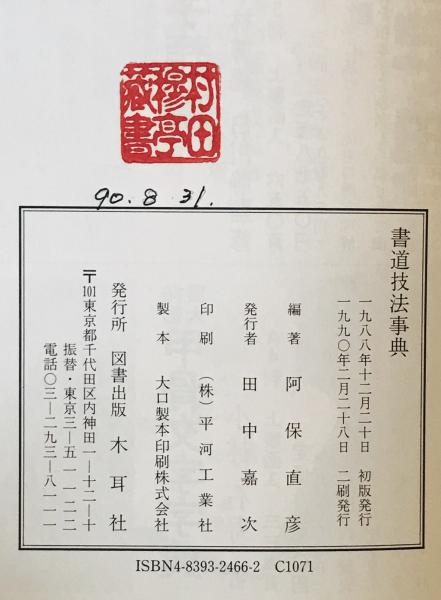 村田
穆亭
藏書
90.8 31.
書道技法事典
一九八八年十二月二十日 初版発行
一九九〇年二月二十八日 二刷発行
編著 阿保直彦
発行者 田中嘉次
印刷 (株)平河工業社
製本 大口製本印刷株式会社
発行所 図書出版 木耳社
〒101東京都千代田区内神田一—十二—十
振替・東京三—五一一二二
電話〇三—二九三—八一一一
ISBN4-8393-2466-2 C1071